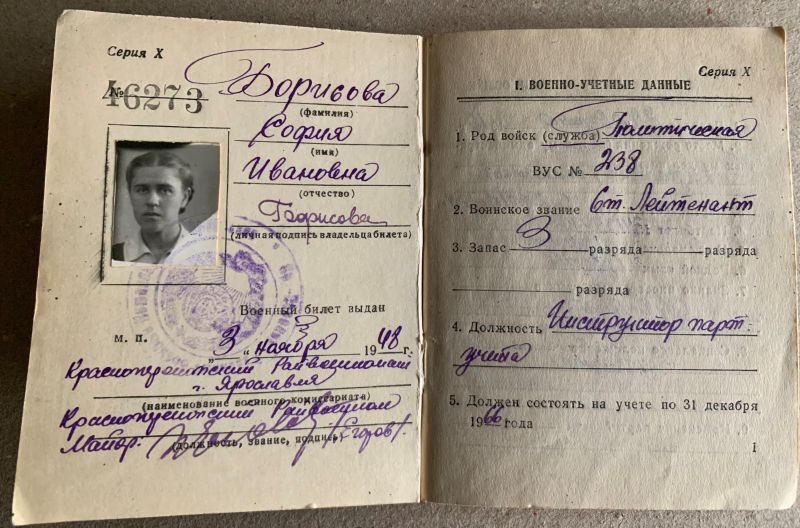 Серия X
№ 46273
Борисова
(фамилия)
София
(имя)
Ивановна
(отчество)
Борисова
(личная подпись владельца билета)
Военный билет выдан
м. п. „3" ноября 1948 г.
Красноперекопский Райвоенкомат
г. Ярославля
(наименование военного комиссариата)
Красноперекопский Райвоенком
Майор (Егоров).
(должность, звание, подпись)
Серия X
I. ВОЕННО-УЧЕТНЫЕ ДАННЫЕ
1. Род войск (служба) Политическая
ВУС № 238
2. Воинское звание Ст. Лейтенант
3. Запас 3 разряда разряда
разряда
4. Должность Инструктор парт.
учета
5. Должен состоять на учете по 31 декабря
1966 года
1